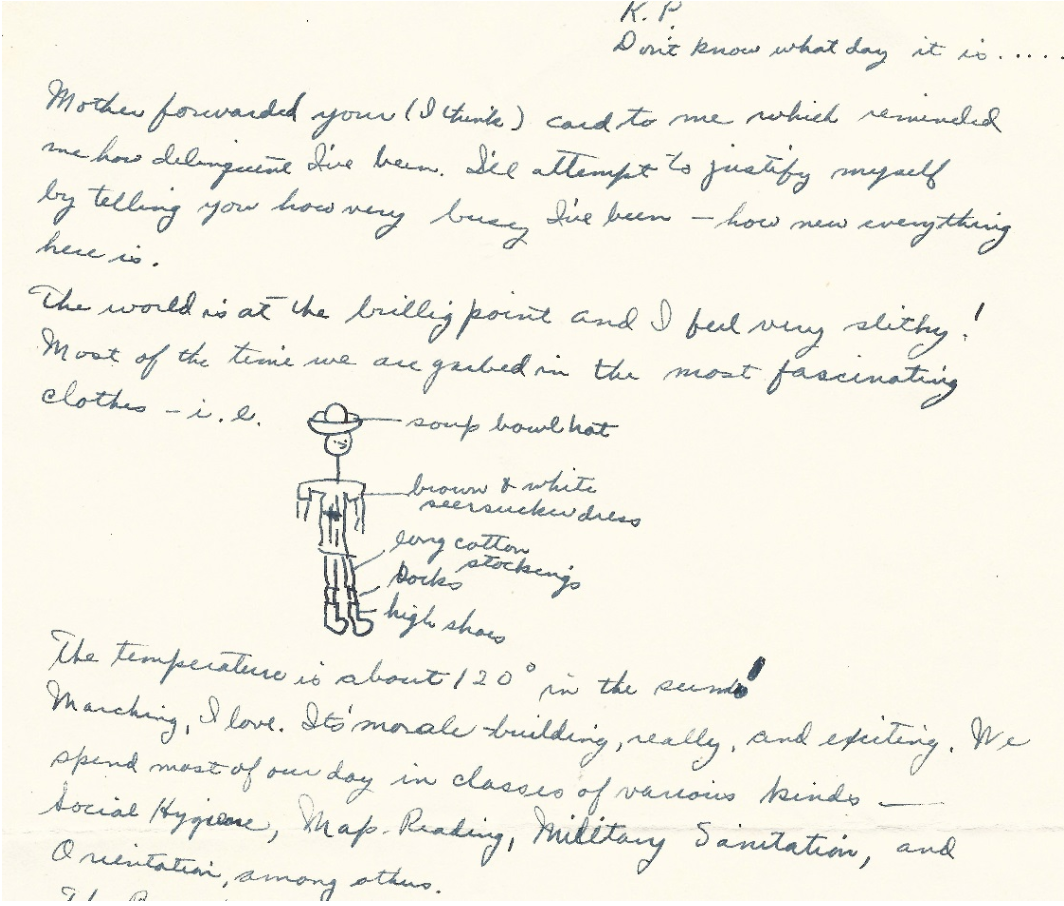 K. P.
Don't know what day it is.....
Mother forwarded your (I think) card to me which reminded
me how delinquent I've been. I'll attempt to justify myself
by telling you how very busy I've been – how new everything
here is.
The world is at the brillig point and I feel very slithy!
Most of the time we are garbed in the most fascinating
clothes – i.e.
soup bowl hat
brown & white
seersucker dress
long cotton
stockings
socks
high shoes
The temperature is about 120° in the
Marching, I love. Its' morale-building, really, and exciting. We
spend most of our day in classes of various kinds —
Social Hygiene, Map-Reading, Military Sanitation, and
Orientation, among others.